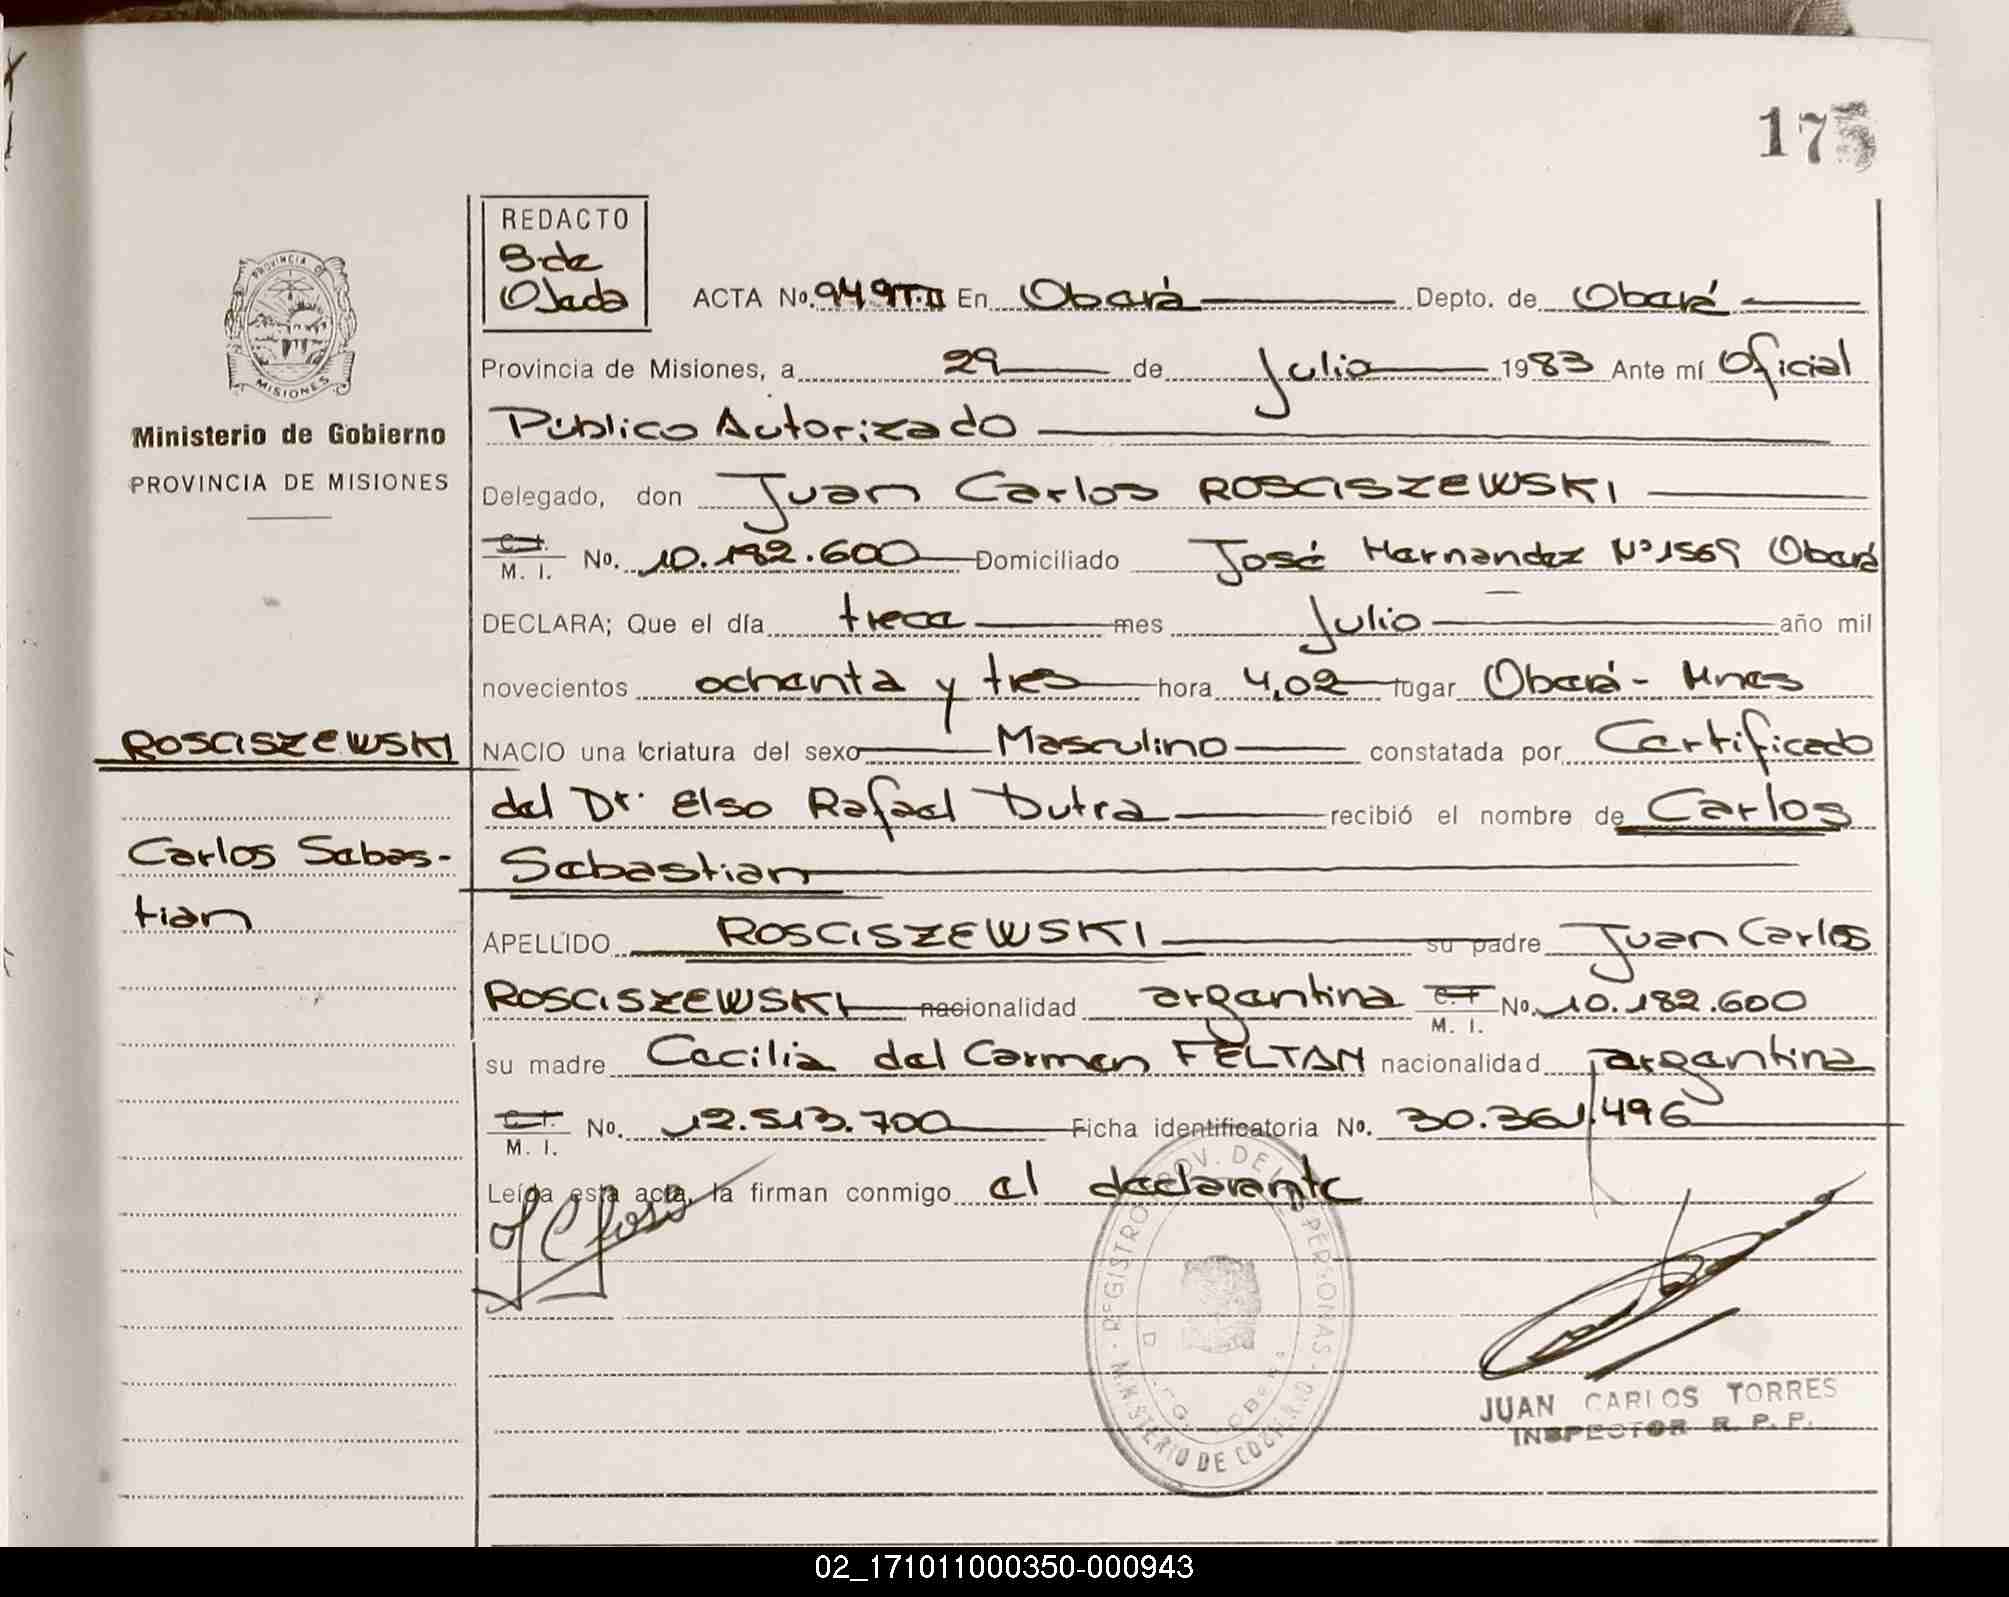 175
REDACTO
B. de
Ojeda
PROVINCIA DE
MISIONES
Ministerio de Gobierno
PROVINCIA DE MISIONES
ACTA No. 949 T. II En Oberá Depto. de Oberá
Provincia de Misiones, a 29 de Julio 1983 Ante mí Oficial
Público Autorizado
Delegado, don Juan Carlos ROSCISZEWSKI
C. I.
M. I. No. 10.182.600 Domiciliado José Hernandez Nº 1569 Oberá
DECLARA; Que el día trece mes Julio año mil
novecientos ochenta y tres hora 4,02 lugar Oberá - Mnes
ROSCISZEWSKI
NACIO una criatura del sexo Masculino constatada por Certificado
del Dr. Elso Rafael Dutra recibió el nombre de Carlos
Carlos Sebas-
tian
Sebastian
APELLIDO ROSCISZEWSKI su padre Juan Carlos
ROSCISZEWSKI nacionalidad argentina C. I.
M. I. No. 10.182.600
su madre Cecilia del Carmen FELTAN nacionalidad argentina
C. I.
M. I. No. 12.513.700 Ficha identificatoria No. 30.361.496
Leída esta acta, la firman conmigo el declarante
REGISTRO PROV. DE LAS PERSONAS
MINISTERIO DE GOBIERNO
JUAN CARLOS TORRES
INSPECTOR R. P. P.
02_171011000350-000943